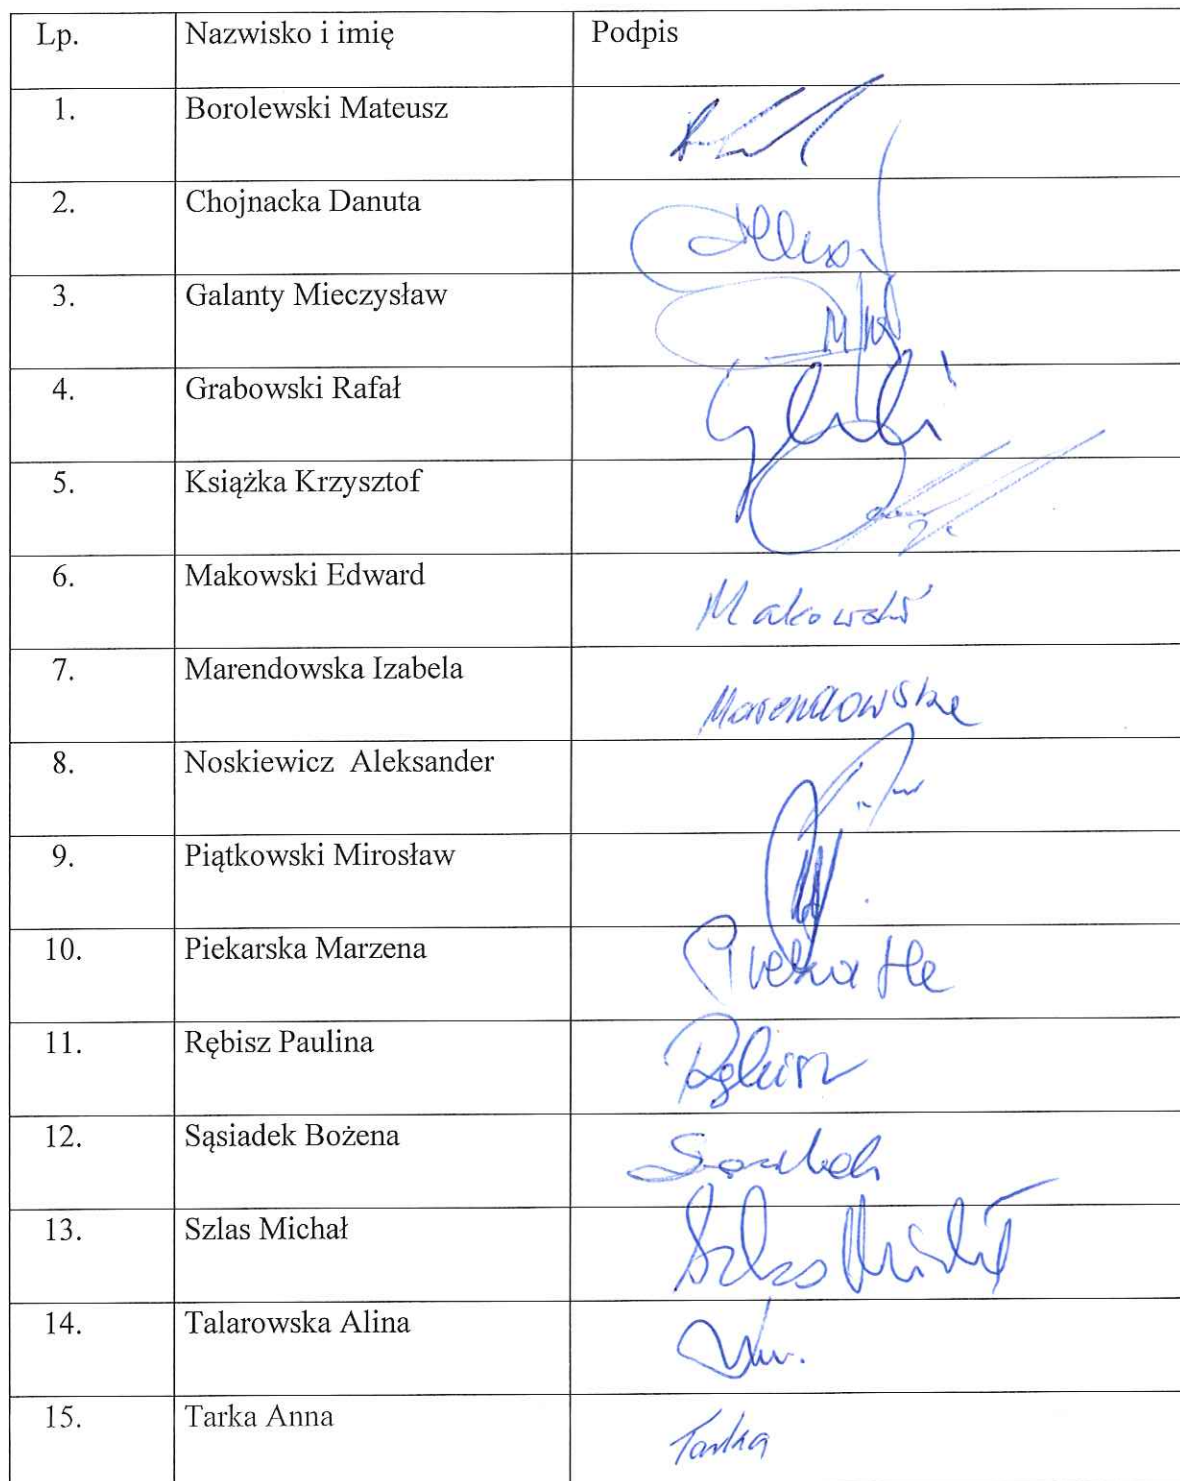 Lp. Nazwisko i imię Podpis
1. Borolewski Mateusz
2. Chojnacka Danuta
3. Galanty Mieczysław
4. Grabowski Rafał
5. Książka Krzysztof
6. Makowski Edward Makowski
7. Marendowska Izabela Marendowska
8. Noskiewicz Aleksander
9. Piątkowski Mirosław
10. Piekarska Marzena
11. Rębisz Paulina Rębisz
12. Sąsiadek Bożena
13. Szlas Michał Szlas Michał
14. Talarowska Alina
15. Tarka Anna Tarka